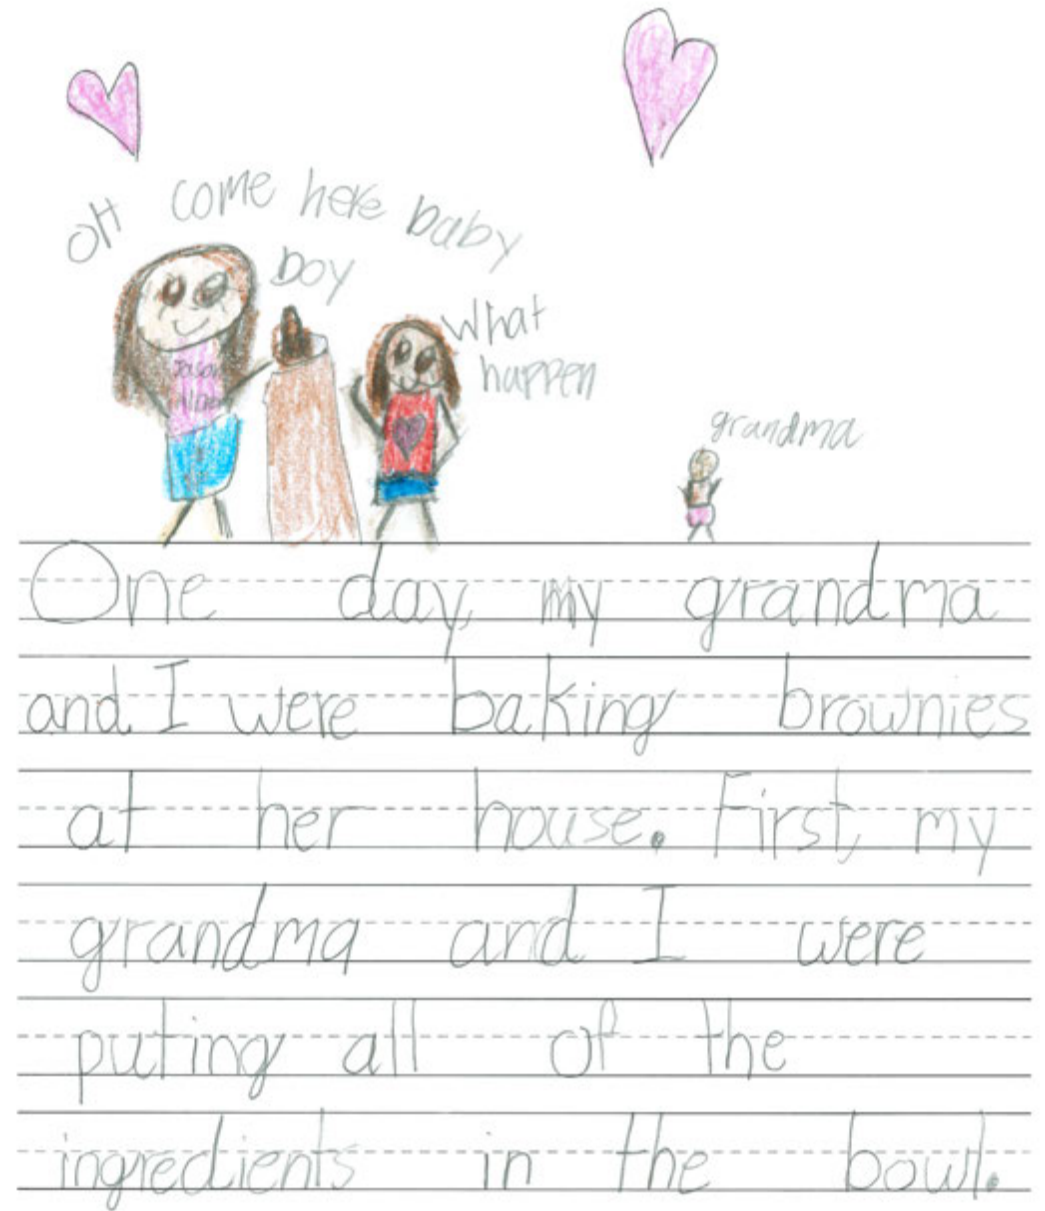 OH come here baby
boy
What
happen
Jason
grandma
One day, my grandma
and I were baking brownies
at her house. First, my
grandma and I were
puting all of the
ingredients in the bowl.